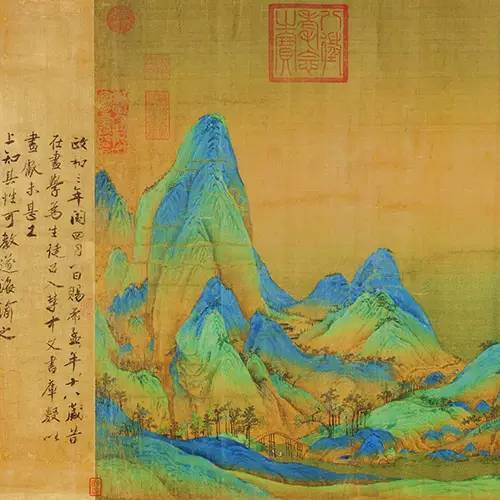 八徵
耄念
之寶
政和三年閏四月一日賜希孟年十八歲昔
在畫學為生徒召入禁中文書庫數以
畫獻未甚工
上知其性可教遂誨諭之